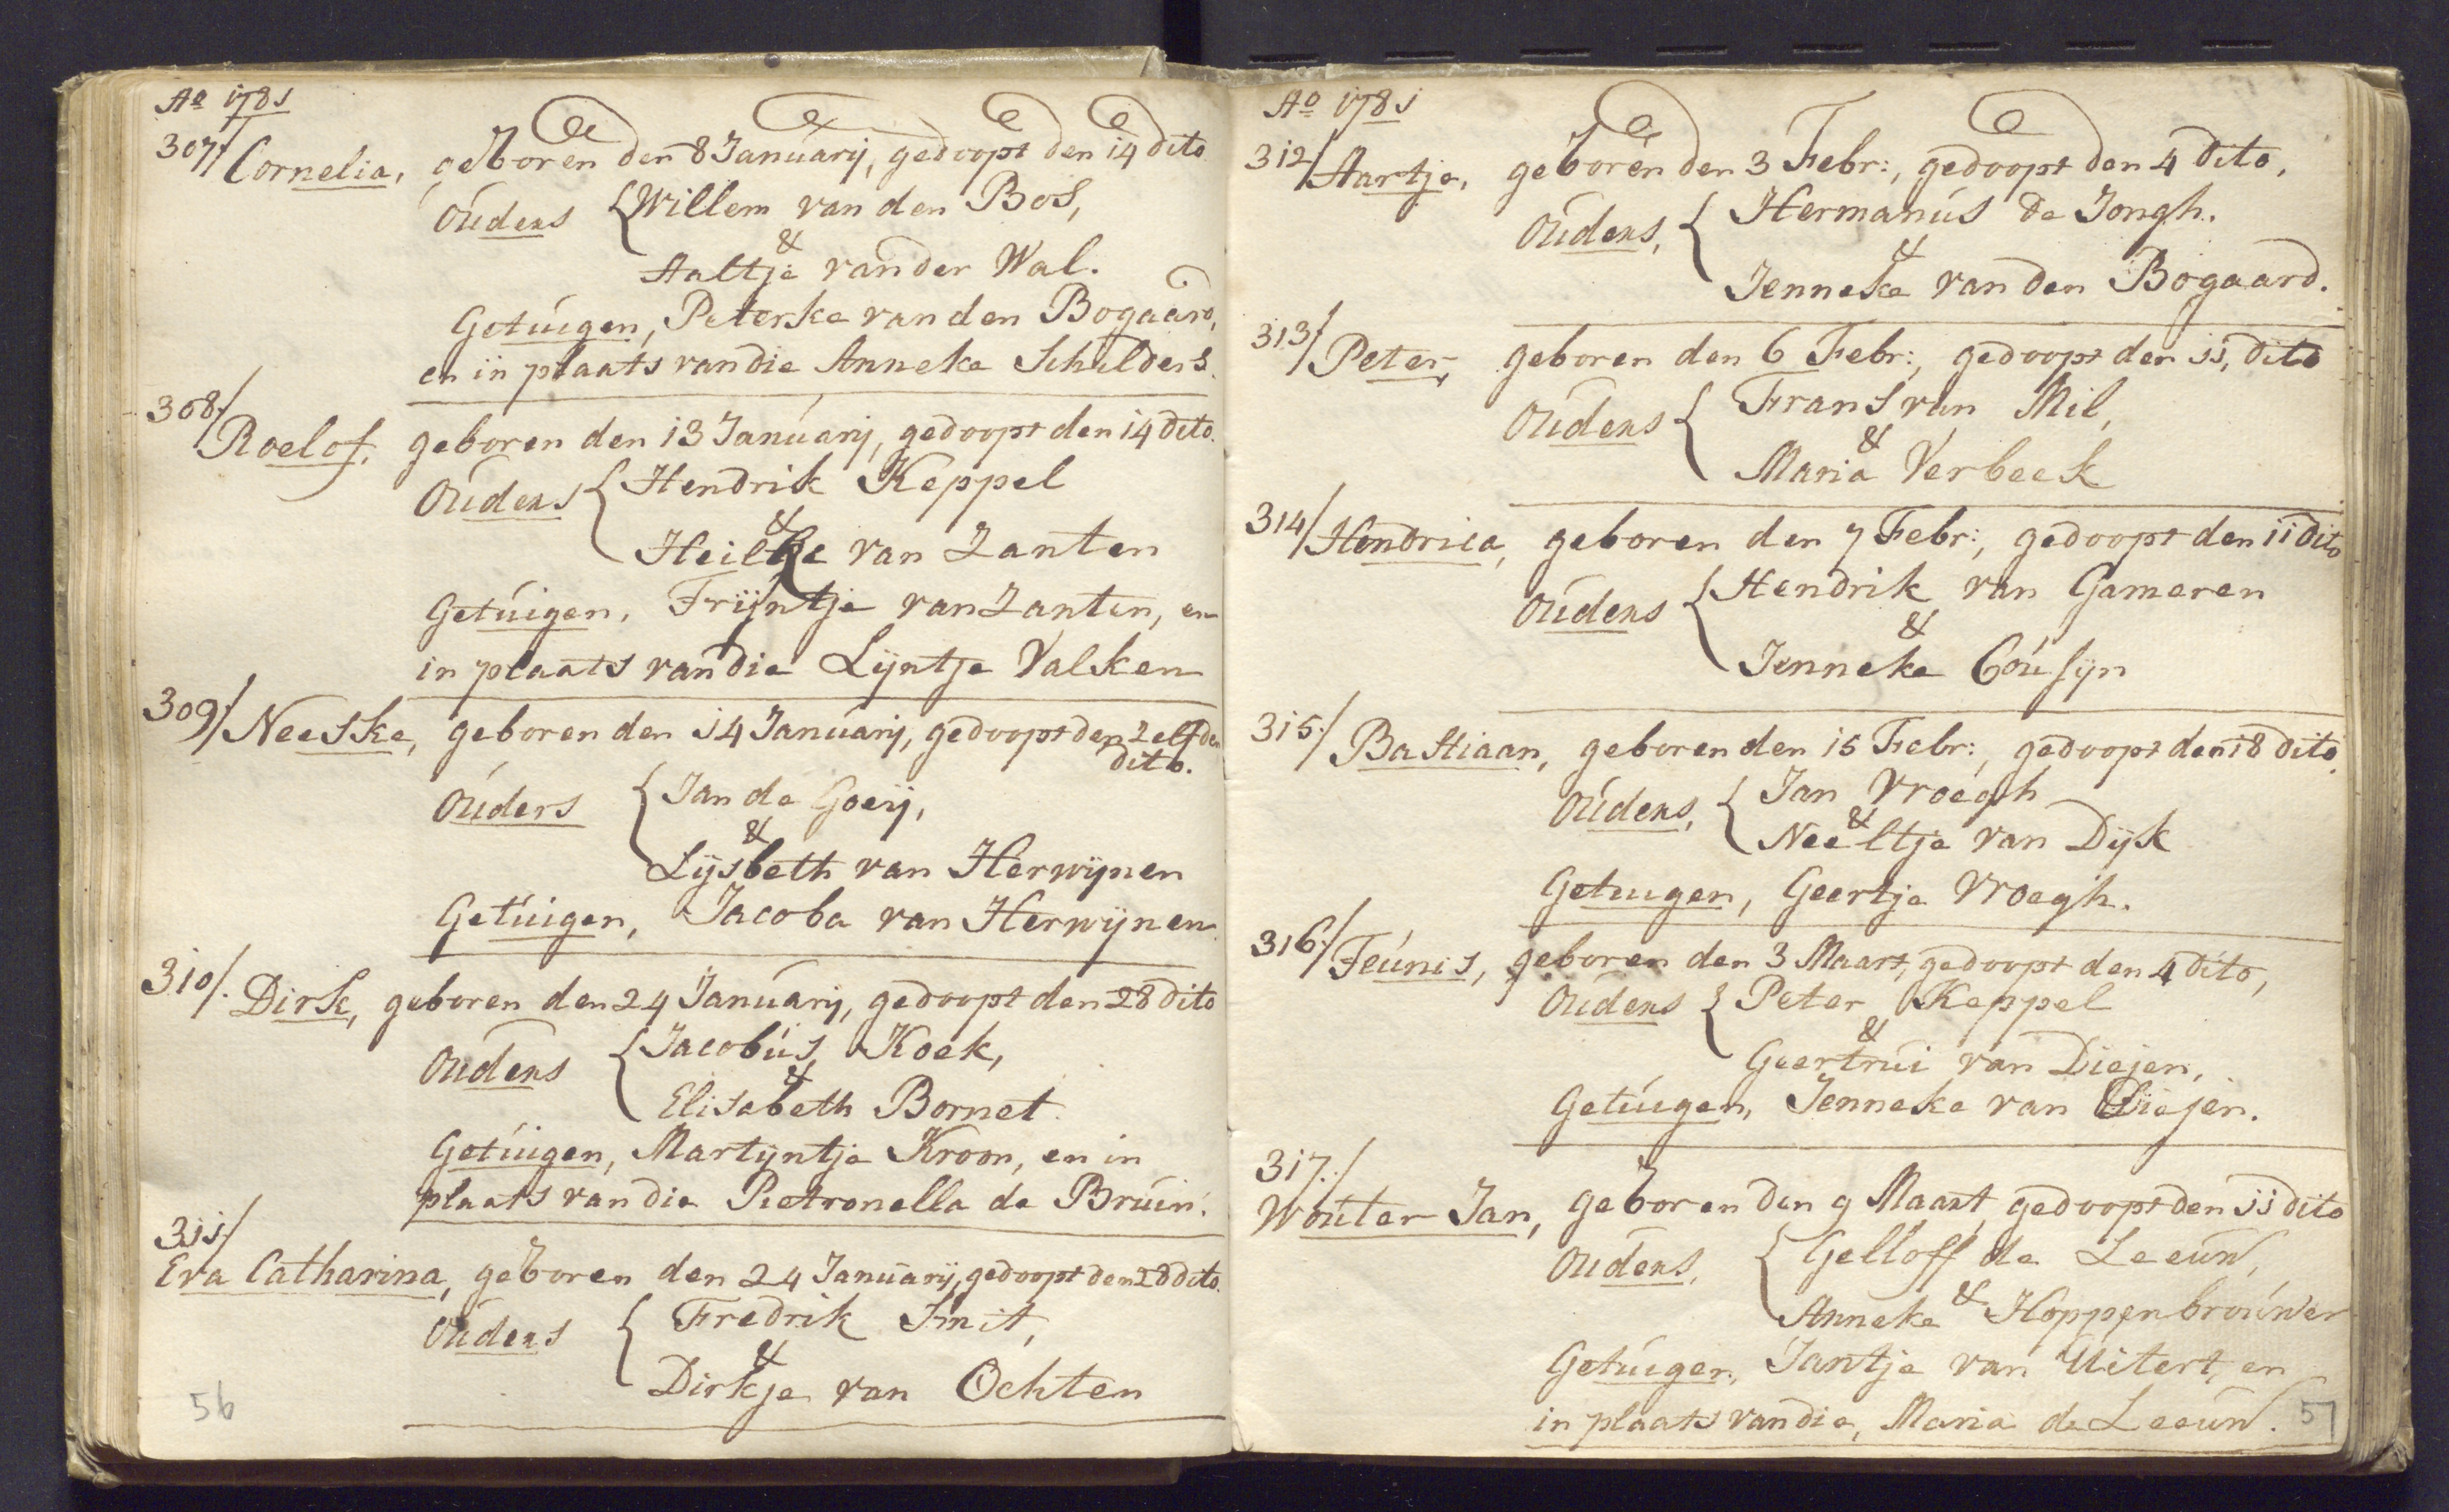 Ao 1781
307/ Cornelia, geboren den 8 Januarij, gedoopt den 14 dito
Ouders { Willem van den Bos,
&
Aaltje van der Wal.
Getuigen, Peterke van den Bogaard,
en in plaats van die Anneke Schulders.
308/ Roelof, geboren den 13 Januarij, gedoopt den 14 dito.
Ouders { Hendrik Keppel
&
van Zanten
Getuigen, Trijntje van Zanten, en
in plaats van die Lijntje Valken
309/ Neeske, geboren den 14 Januarij, gedoopt den Zelfden
dito.
Ouders { Jan de Goeij,
&
Lijsbeth van Herwijnen
Getuigen, Jacoba van Herwijnen
310/. Dirk, geboren den 24 Januarij, gedoopt den 28 dito
Ouders { Jacobus Koek,
&
Elisabeth Bornet.
Getuigen, Martijntje Kroon, en in
plaats van die Pietronella de Bruin.
311/
Eva Catharina, geboren den 24 Januarij, gedoopt den 28 dito.
Ouders { Fredrik Smit,
&
Dirkje van Ochten
56
Ao 1781
312/ Aartje, geboren den 3 Febr:, gedoopt den 4 dito,
Ouders, { Hermanus de Jongh.
&
Jenneke van den Bogaard.
313/ Peter, geboren den 6 Febr:, gedoopt den 11, dito
Ouders { Frans van Mil,
&
Maria Verbeek
314/ Hendrica, geboren den 7 Febr:, gedoopt den 11 dito
Ouders { Hendrik van Gameren
&
Jenneke Cousijn
315./ Bastiaan, geboren den 15 Febr:, gedoopt den 18 dito
Ouders, { Jan Vroegh
&
Neeltje van Dijk
Getuigen, Geertje Vroegh.
316/ Teunis, geboren den 3 Maart, gedoopt den 4 dito,
Ouders { Peter Keppel
&
Geertrui van Diejen,
Getuigen, Jenneke van Diejen.
317./
Wouter Jan, geboren den 9 Maart, gedoopt den 11 dito
Ouders, { Gelloff de Leeuw,
&
Anneke Hoppenbrouwer
Getuigen, Jantje van Uitert, en
in plaats van die, Maria de Leeuw.
57